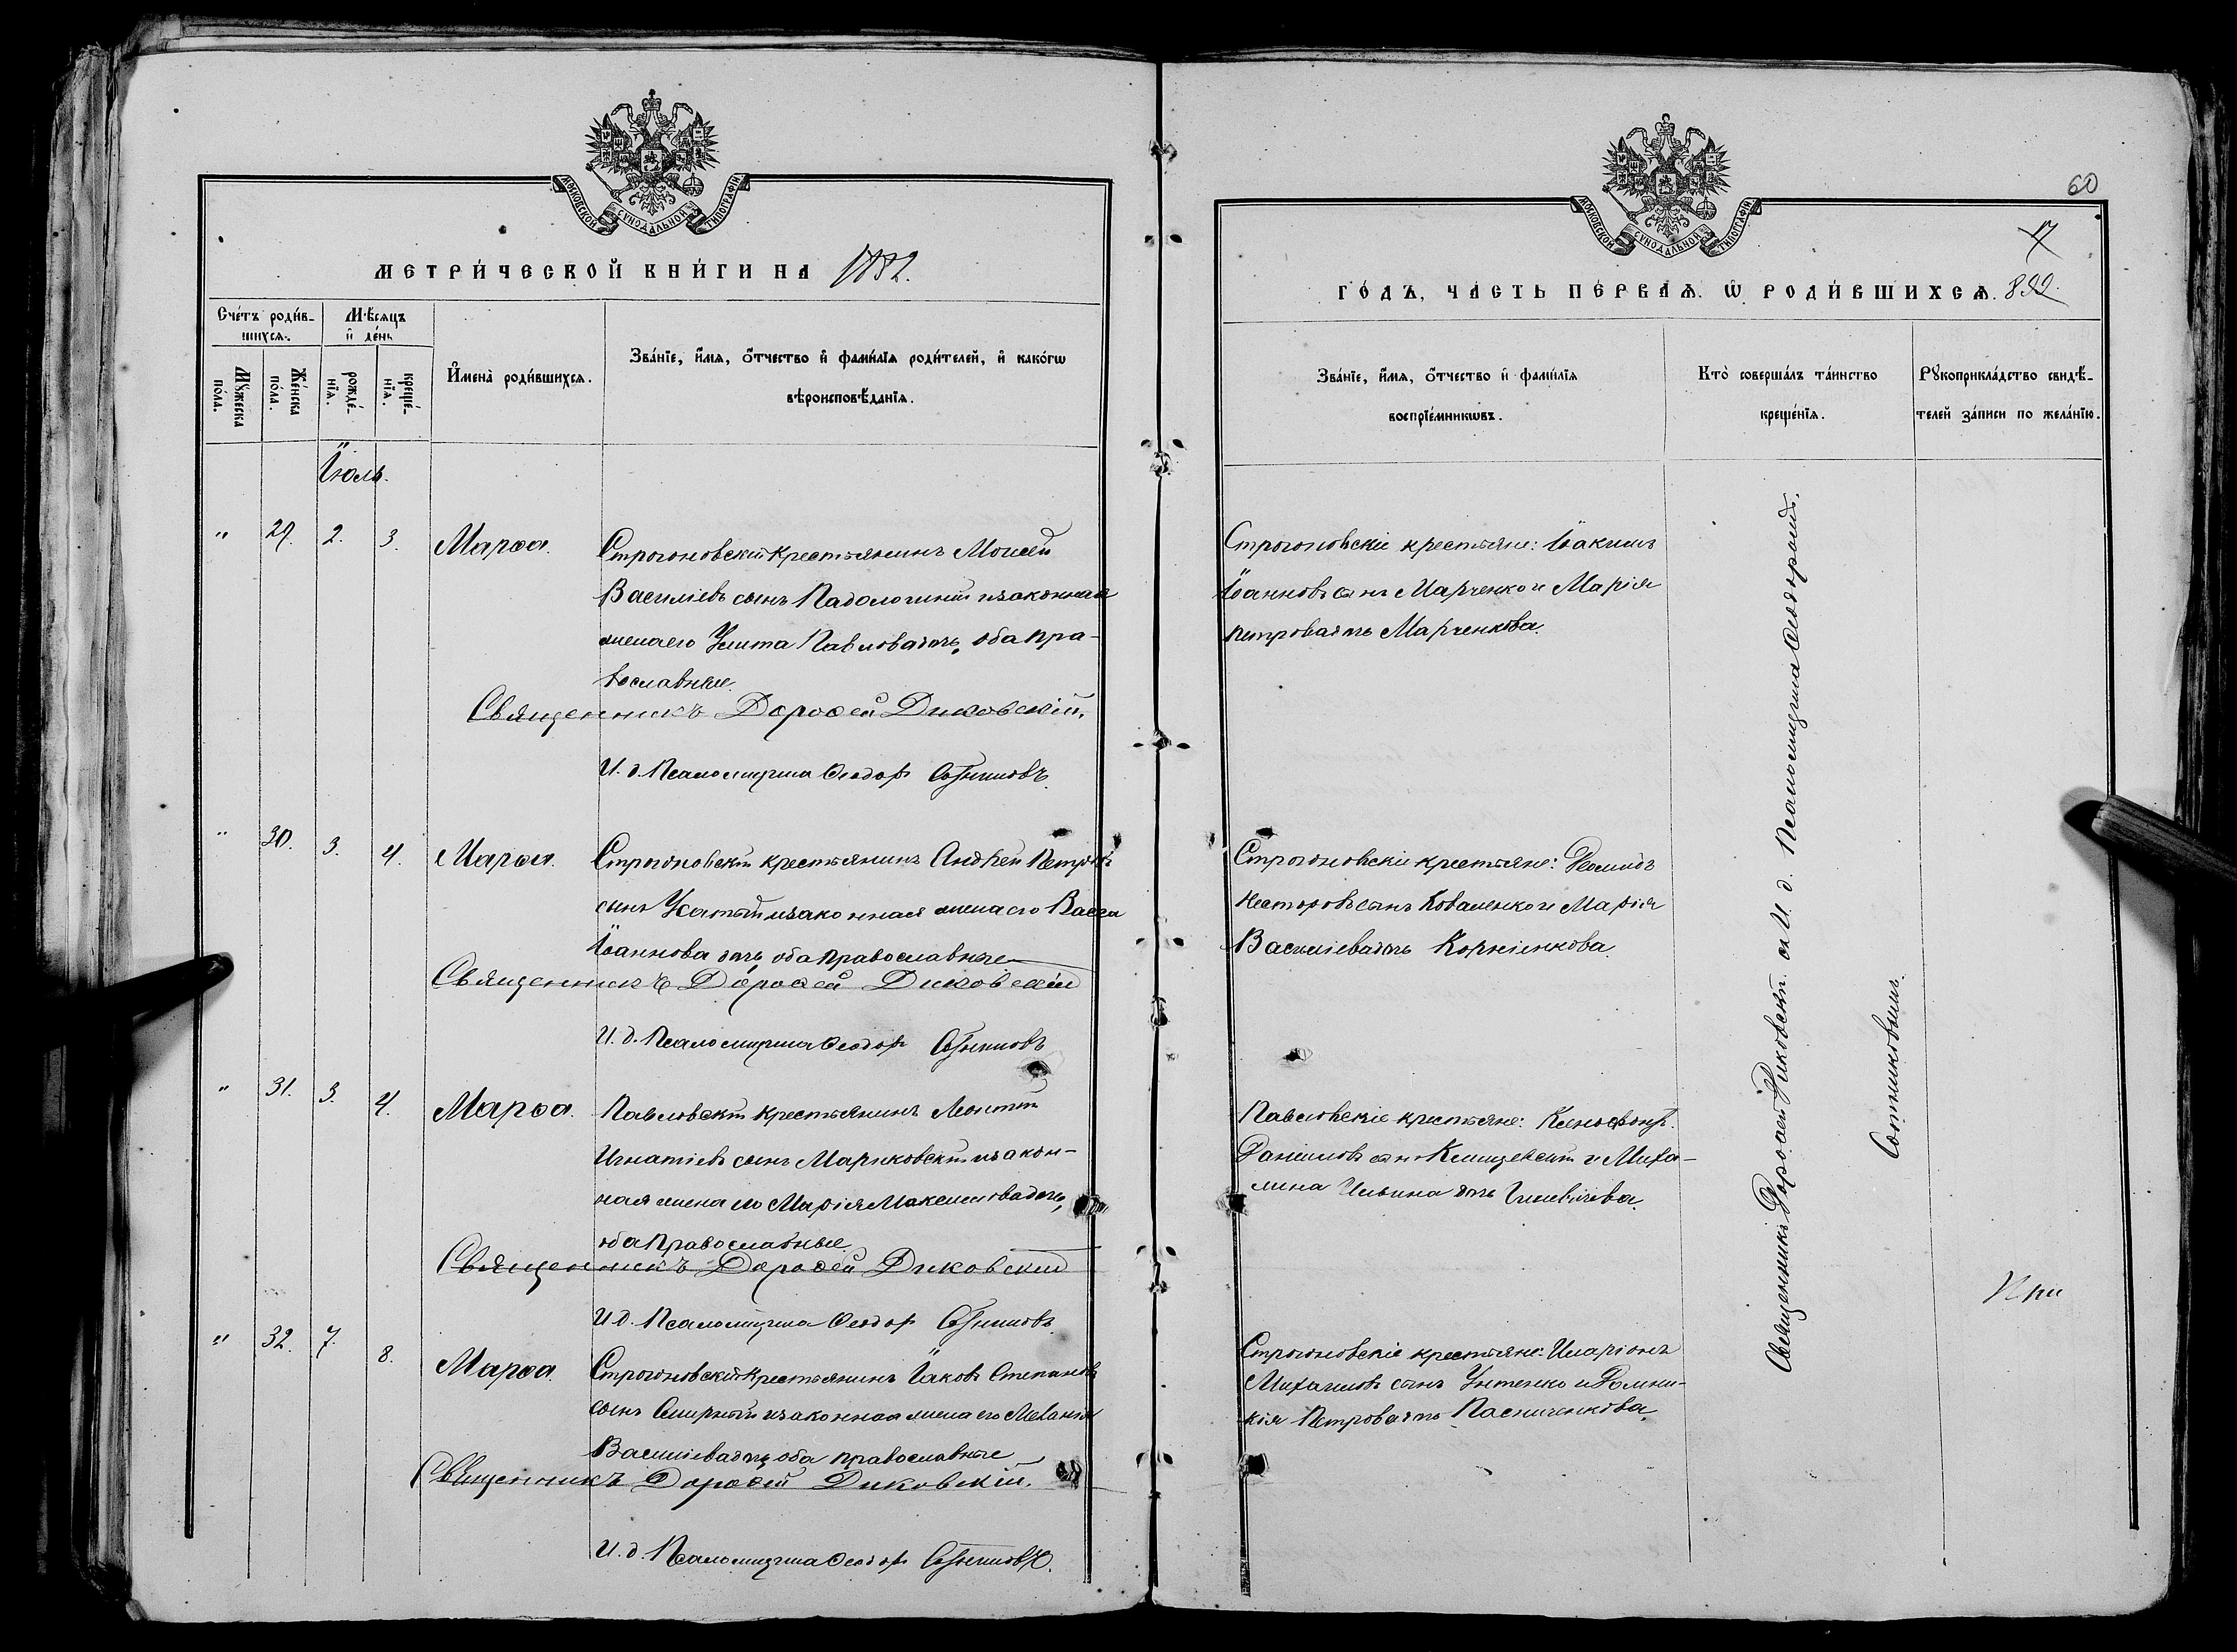 МОСКОВСКОЙ СѴНОДАЛЬНОЙ ТИПОГРАФІИ
МЕТРИЧЕСКОЙ КНИГИ НА 1882.
Счетъ родив-
шихся.
Мѣсяцъ
и день
Мꙋжеска
пола.
Женска
пола.
рожде-
нія.
креще-
нія.
Имена родившихся.
Званіе, имя, отчество и фамилія родителей, и какогѡ
вѣроисповѣданія.
Іюль.
" 29. 2. 3. Марѳа.
Строгоновскій крестьянинъ Моисей
Василіевъ сынъ и законная
жена его Улита Павлова дочь, оба пра-
вославные.
Священникъ Дороѳей Диковскій.
И. д. Псаломщика Ѳеодоръ Сотниковъ.
" 30. 3. 4. Марѳа.
Строгоновскій крестьянинъ Андрей Петровъ
сынъ Усатый и законная жена его Васса
Іоаннова дочь, оба православные
Священникъ Дороѳей Диковскій
И. д. Псаломщика Ѳеодоръ Сотниковъ
" 31. 3. 4. Марѳа.
Павловскій крестьянинъ Леонтій
Игнатіевъ сынъ Мариковскій и закон-
ная жена его Марія Максимова дочь,
оба православные.
Священникъ Дороѳей Диковскій
И. д. Псаломщика Ѳеодоръ Сотниковъ
" 32. 7. 8. Марѳа
Строгоновскій крестьянинъ Іаковъ Степановъ
сынъ Смирный и законная жена его Меланія
Василіева дочь, оба православные
Священникъ Дороѳей Диковскій.
И. д. Псаломщика Ѳеодоръ Сотниковъ.
60
17
МОСКОВСКОЙ СѴНОДАЛЬНОЙ ТИПОГРАФІИ
ГОДЪ, ЧАСТЬ ПЕРВАѦ. Ѡ РОДИВШИХСѦ. 899.
Званіе, имя, отчество и фамилія
воспріемникѡвъ.
Кто совершалъ таинство
крещенія.
Рꙋкоприкладство свидѣ-
телей записи по желанію.
Строгоновскіе крестьяне: Іакимъ
Іоанновъ сынъ Марченко и Марія
Петрова дочь Марченкова.
Строгоновскіе крестьяне: Діомидъ
Несторовъ сынъ Коваленко и Марія
Василіева дочь Корніенкова.
Павловскіе крестьяне: Ксенофонтъ
Даніиловъ сынъ и Миха-
лина Ильина дочь
Строгоновскіе крестьяне: Иларіонъ
Михаиловъ сынъ и Домни-
кія Петрова дочь Пасниченкова.
Священникъ Дороѳей Диковскій съ И. д. Псаломщика Ѳеодоромъ
Сотниковымъ.
При